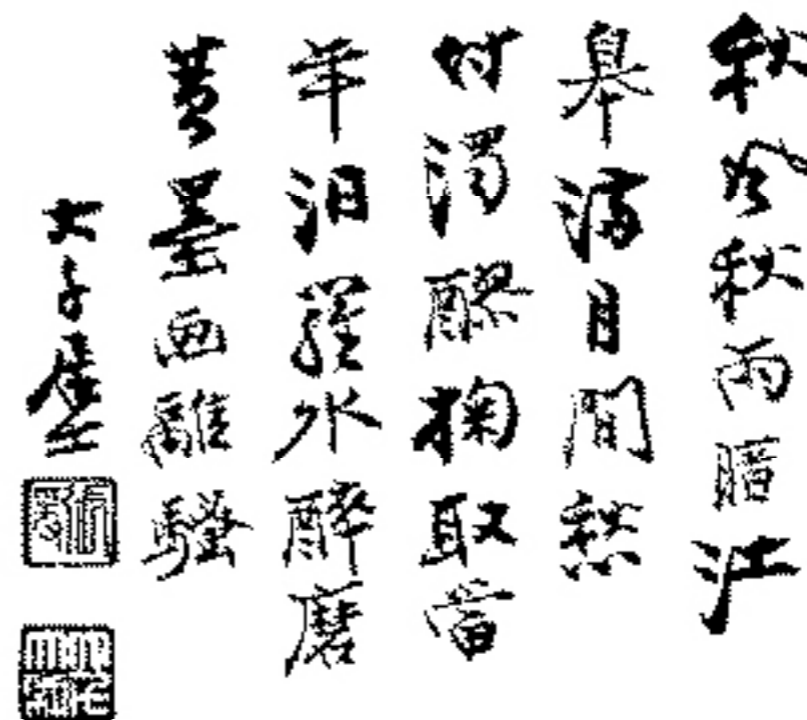 秋風秋雨暗江
皋滿目閒愁
付濁醪掬取當
年汨羅水醉磨
黃墨画離騷
大千居士